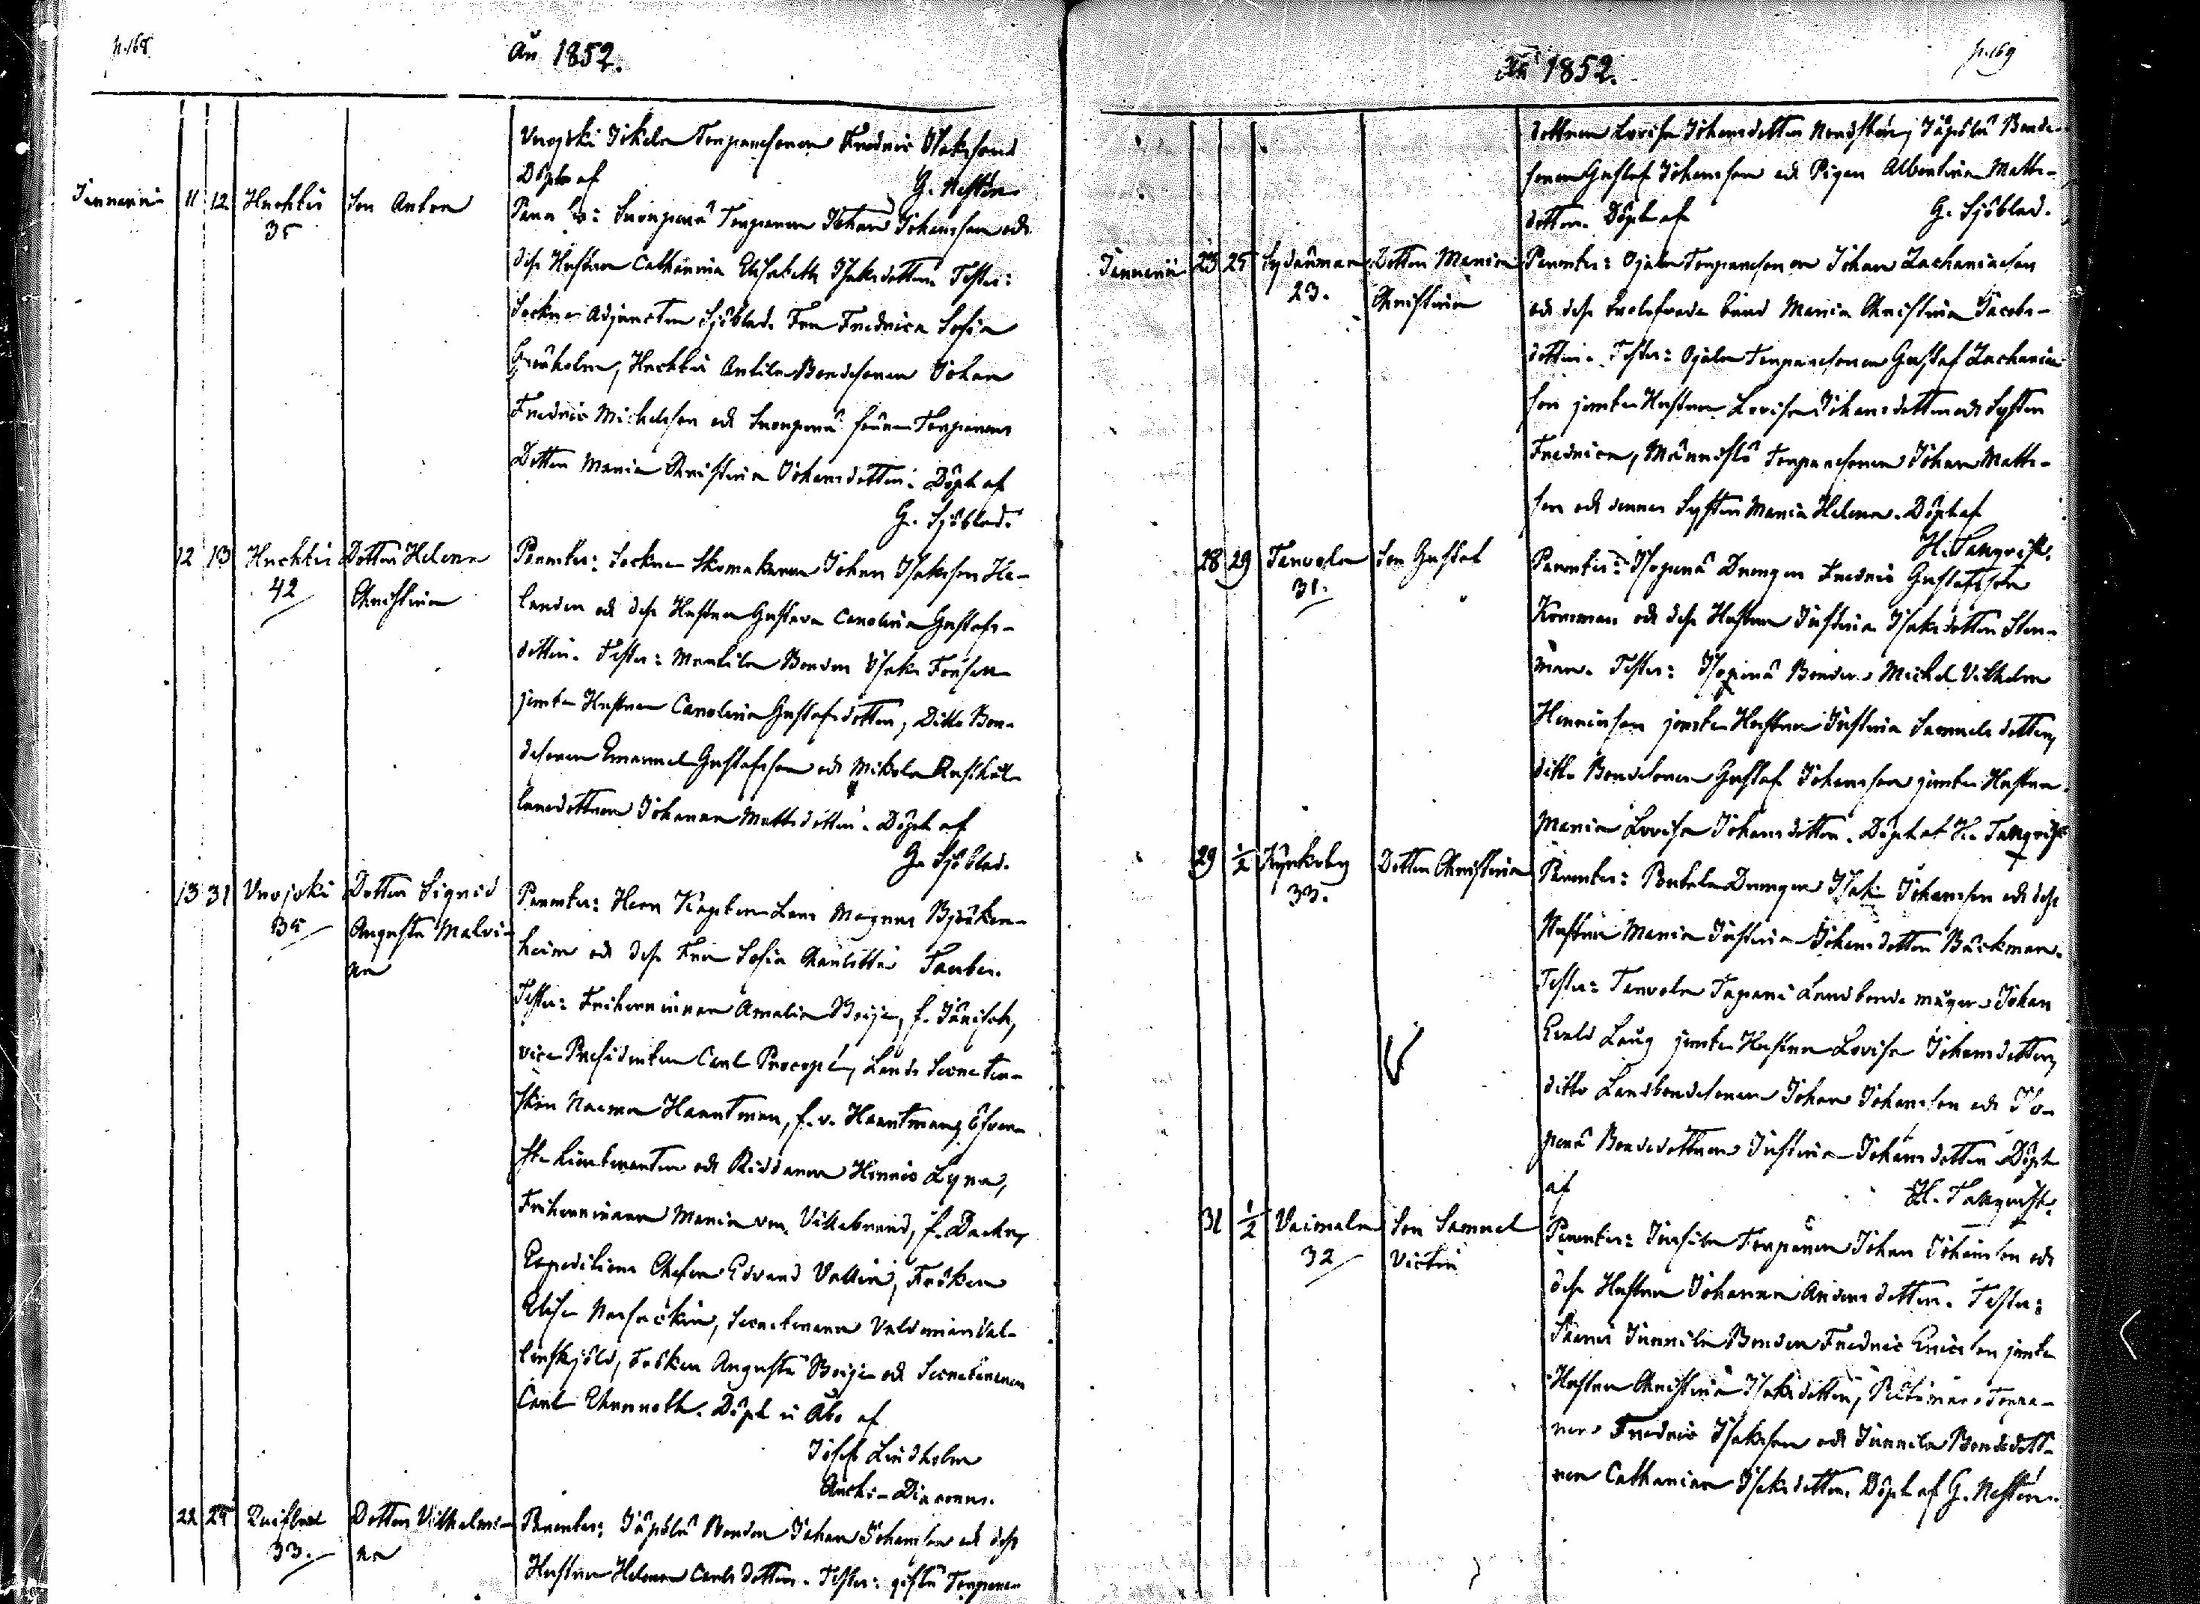 p. 168
År 1852.
Vuojoki Iskala Torparesonen Fredric Isaksson
Döpt af G. Nestén
Januari 11 12 Huchtis Son Anton
35
Torparen Johan Johansson och
dess Hustru Catharina Elisabeth Isaksdotter. Testes:
Sockne Adjuncten Sjöblad, Fru Fredrica Sofia
Grönholm, Huchtis Anttila Bondesonen Johan
Fredric Michelsson och Torparens
Dotter Maria Christina Johansdotter. Döpt af
G. Sjöblad.
12 13 Huchtis Dotter Helena
42 Christina
Parentes: Sockne Skomakaren Johan Isaksson He-
lander och dess Hustru Gustava Carolina Gustafs-
dotter. Testes: Bonden Isak
jemte Hustrun Carolina Gustafsdotter, Ditto Bon-
desonen Emanuel Gustafsson och Mikola Rusthål-
laredottren Johanna Mattsdotter. Döpt af
G. Sjöblad.
13 31 Vuojoki Dotter Sigrid
35 Augusta Malvi-
na
Parentes: Herr Kapten Lars Magnus Björken-
heim och dess Fru Sofia Charlotta
Testes: Friherrinnan Amalia Boije, f. Jänisch,
vice Presidenten Carl Procopé, Lands Secreter-
skan Haartman, f. v. Haartman, Öfver-
ste Lieutenanten och Riddaren
Friherrinnan Maria von Villebrand, f.
Expeditions Chefen Edvard Vallin, Fröken
Elise Secreteraren Valdemar Val-
lensköld, Fröken Augusta Boije och Secreteraren
Carl Ehrnrooth. Döpt i Åbo af
Josef Lindholm
Archi-Diaconus.
22 25
33. Dotter Vilhelmi-
na
Parentes: Jäpölä Bonden Johan Johansson och dess
Hustru Helena Carlsdotter. Testes: gifta Torpare-
År 1852.
p. 169
dottren Lovisa Johansdotter Nordsten, Jäpölä Bonde-
sonen Gustaf Johansson och Pigan Albertina Matts-
dotter. Döpt af G. Sjöblad.
Januari 23 25 Sydänmaa Dotter Maria
23. Christina
Parentes: Ojala Torparesonen Johan Zachariasson
och dess trolofvade brud Maria Christina Jacobs-
dotter. Testes: Ojala Torparesonen Gustaf Zacharias-
son jemte Hustrun Lovisa Johansdotter och Syster
Fredrica, Männistö Torparesonen Johan Matts-
son och dennes Syster Maria Helena. Döpt af
H. Tanqvist.
28 29 Tarvola Son Gustaf
31.
Parentes: Isopenä Drengen Fredric Gustafsson
Korsman och dess Hustru Justina Isaksdotter Sten-
man. Testes: Isopenä Bonden Michel Vilhelm
Henricsson jemte Hustrun Justina Samuelsdotter,
ditto Bondesonen Gustaf Johansson jemte Hustrun
Maria Lovisa Johansdotter. Döpt af H. Tanqvist
29 1/2 Kynkoby Dotter Christina
33.
Parentes: Perkola Drengen Isak Johansson och dess
Hustru Maria Justina Johansdotter Bäckman.
Testes: Tarvola Tapani Landbonde mågen Johan
Evald Lång jemte Hustrun Lovisa Johansdotter,
ditto Landbondesonen Johan Johansson och Iso-
penä Bondedottren Justina Johansdotter. Döpt
af H. Tanqvist.
31 1/2 Vaimala Son Samuel
32 Victor
Parentes: Torparen Johan Johansson och
dess Hustru Johanna Andersdotter. Testes:
Junnila Bonden Fredric Ericsson jemte
Hustrun Christina Isaksdotter, Torpa-
ren Fredric Isaksson och Junnila Bondedott-
ren Catharina Isaksdotter. Döpt af G. Nestén.